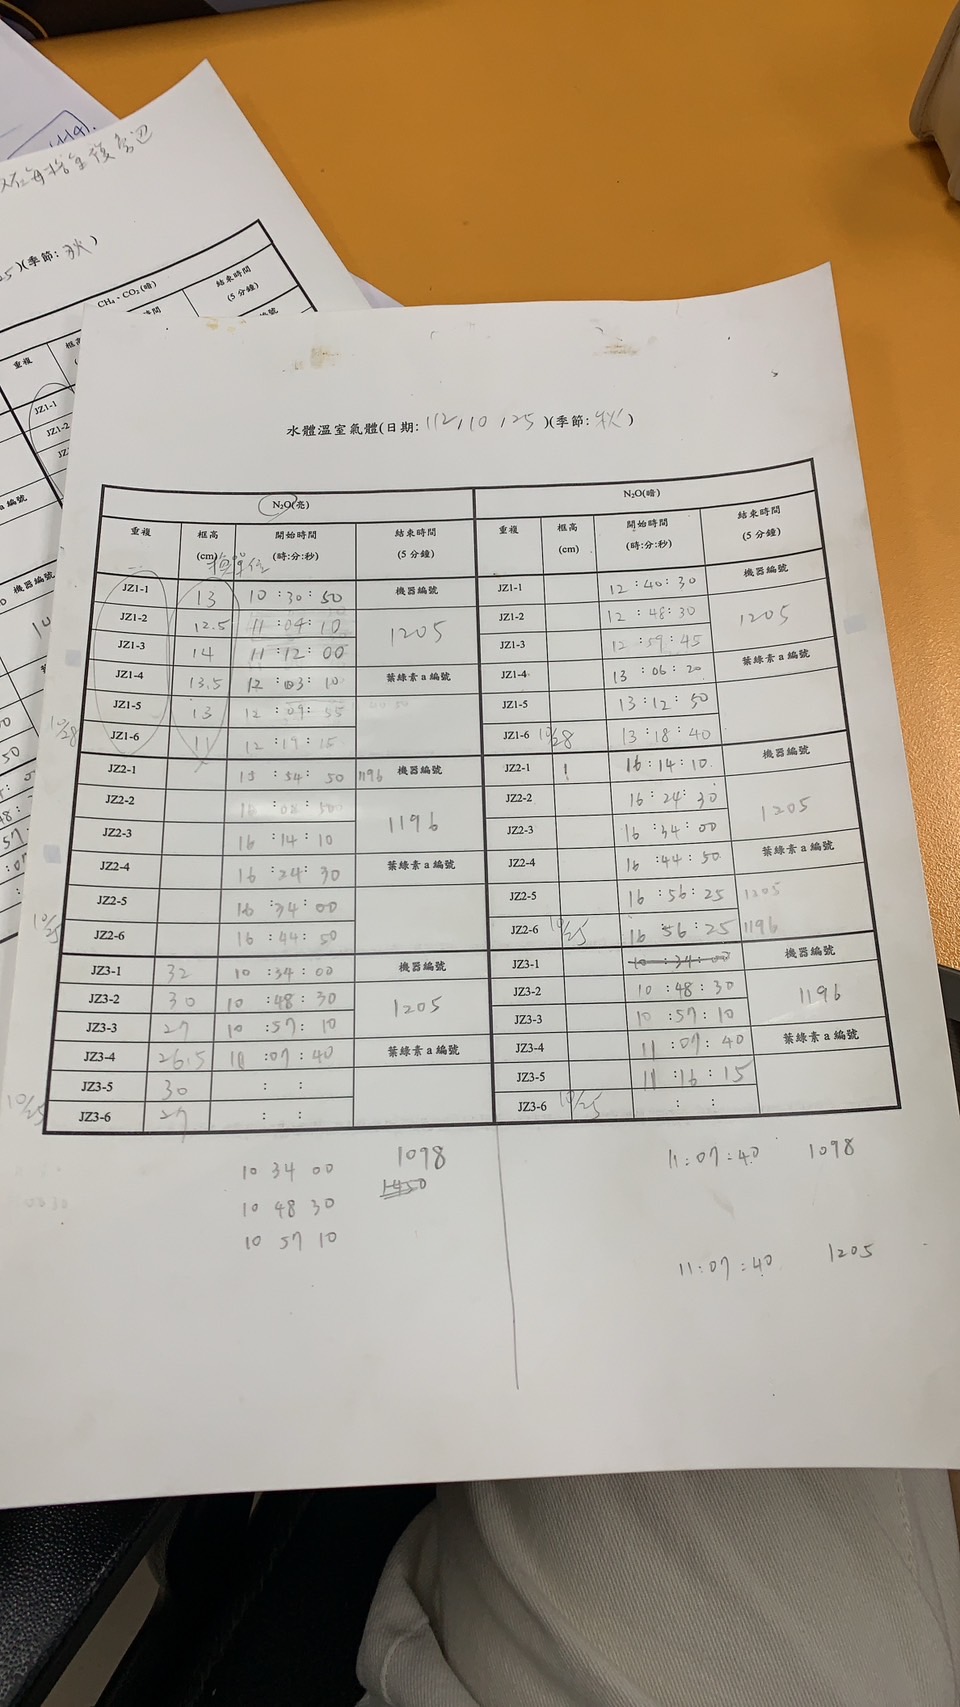 水體溫室氣體(日期: 112/10/25)(季節: 秋)
N₂O(亮) N₂O(暗)
重複 框高(cm) 開始時間(時:分:秒) 結束時間(5 分鐘) 重複 框高(cm) 開始時間(時:分:秒) 結束時間(5 分鐘)
JZ1-1 13 10:30:50 機器編號 JZ1-1 12:40:30 機器編號
JZ1-2 12.5 11:04:10 1205 JZ1-2 12:48:30 1205
JZ1-3 14 11:12:00 JZ1-3 12:59:45
JZ1-4 13.5 12:03:10 葉綠素 a 編號 JZ1-4 13:06:20 葉綠素 a 編號
JZ1-5 13 12:09:55 JZ1-5 13:12:50
10/28 JZ1-6 11 12:19:15 JZ1-6 10/28 13:18:40
JZ2-1 54:50 1196 機器編號 JZ2-1 16:14:10 機器編號
JZ2-2 16 JZ2-2 16:24:30 1205
JZ2-3 16:14:10 1196 JZ2-3 16:34:00
JZ2-4 16:24:30 葉綠素 a 編號 JZ2-4 16:44:50 葉綠素 a 編號
JZ2-5 16:34:00 JZ2-5 16:56:25 1205
10/25 JZ2-6 16:44:50 JZ2-6 10/25 16:56:25 1196
JZ3-1 32 10:34:00 機器編號 JZ3-1 10:34:00 機器編號
JZ3-2 30 10:48:30 1205 JZ3-2 10:48:30 1196
JZ3-3 27 10:57:10 JZ3-3 10:57:10
JZ3-4 26.5 11:07:40 葉綠素 a 編號 JZ3-4 11:07:40 葉綠素 a 編號
JZ3-5 30 : : JZ3-5 11:16:15
10/25 JZ3-6 27 : : JZ3-6 10/25 : :
10 34 00 1098 11:07:40 1098
10 48 30
10 57 10 11:07:40 1205
)(季節: 秋)
CH₄、CO₂(暗)
重複 結束時間
(5 分鐘)
JZ1-1
JZ1-2
a 編號
機器編號